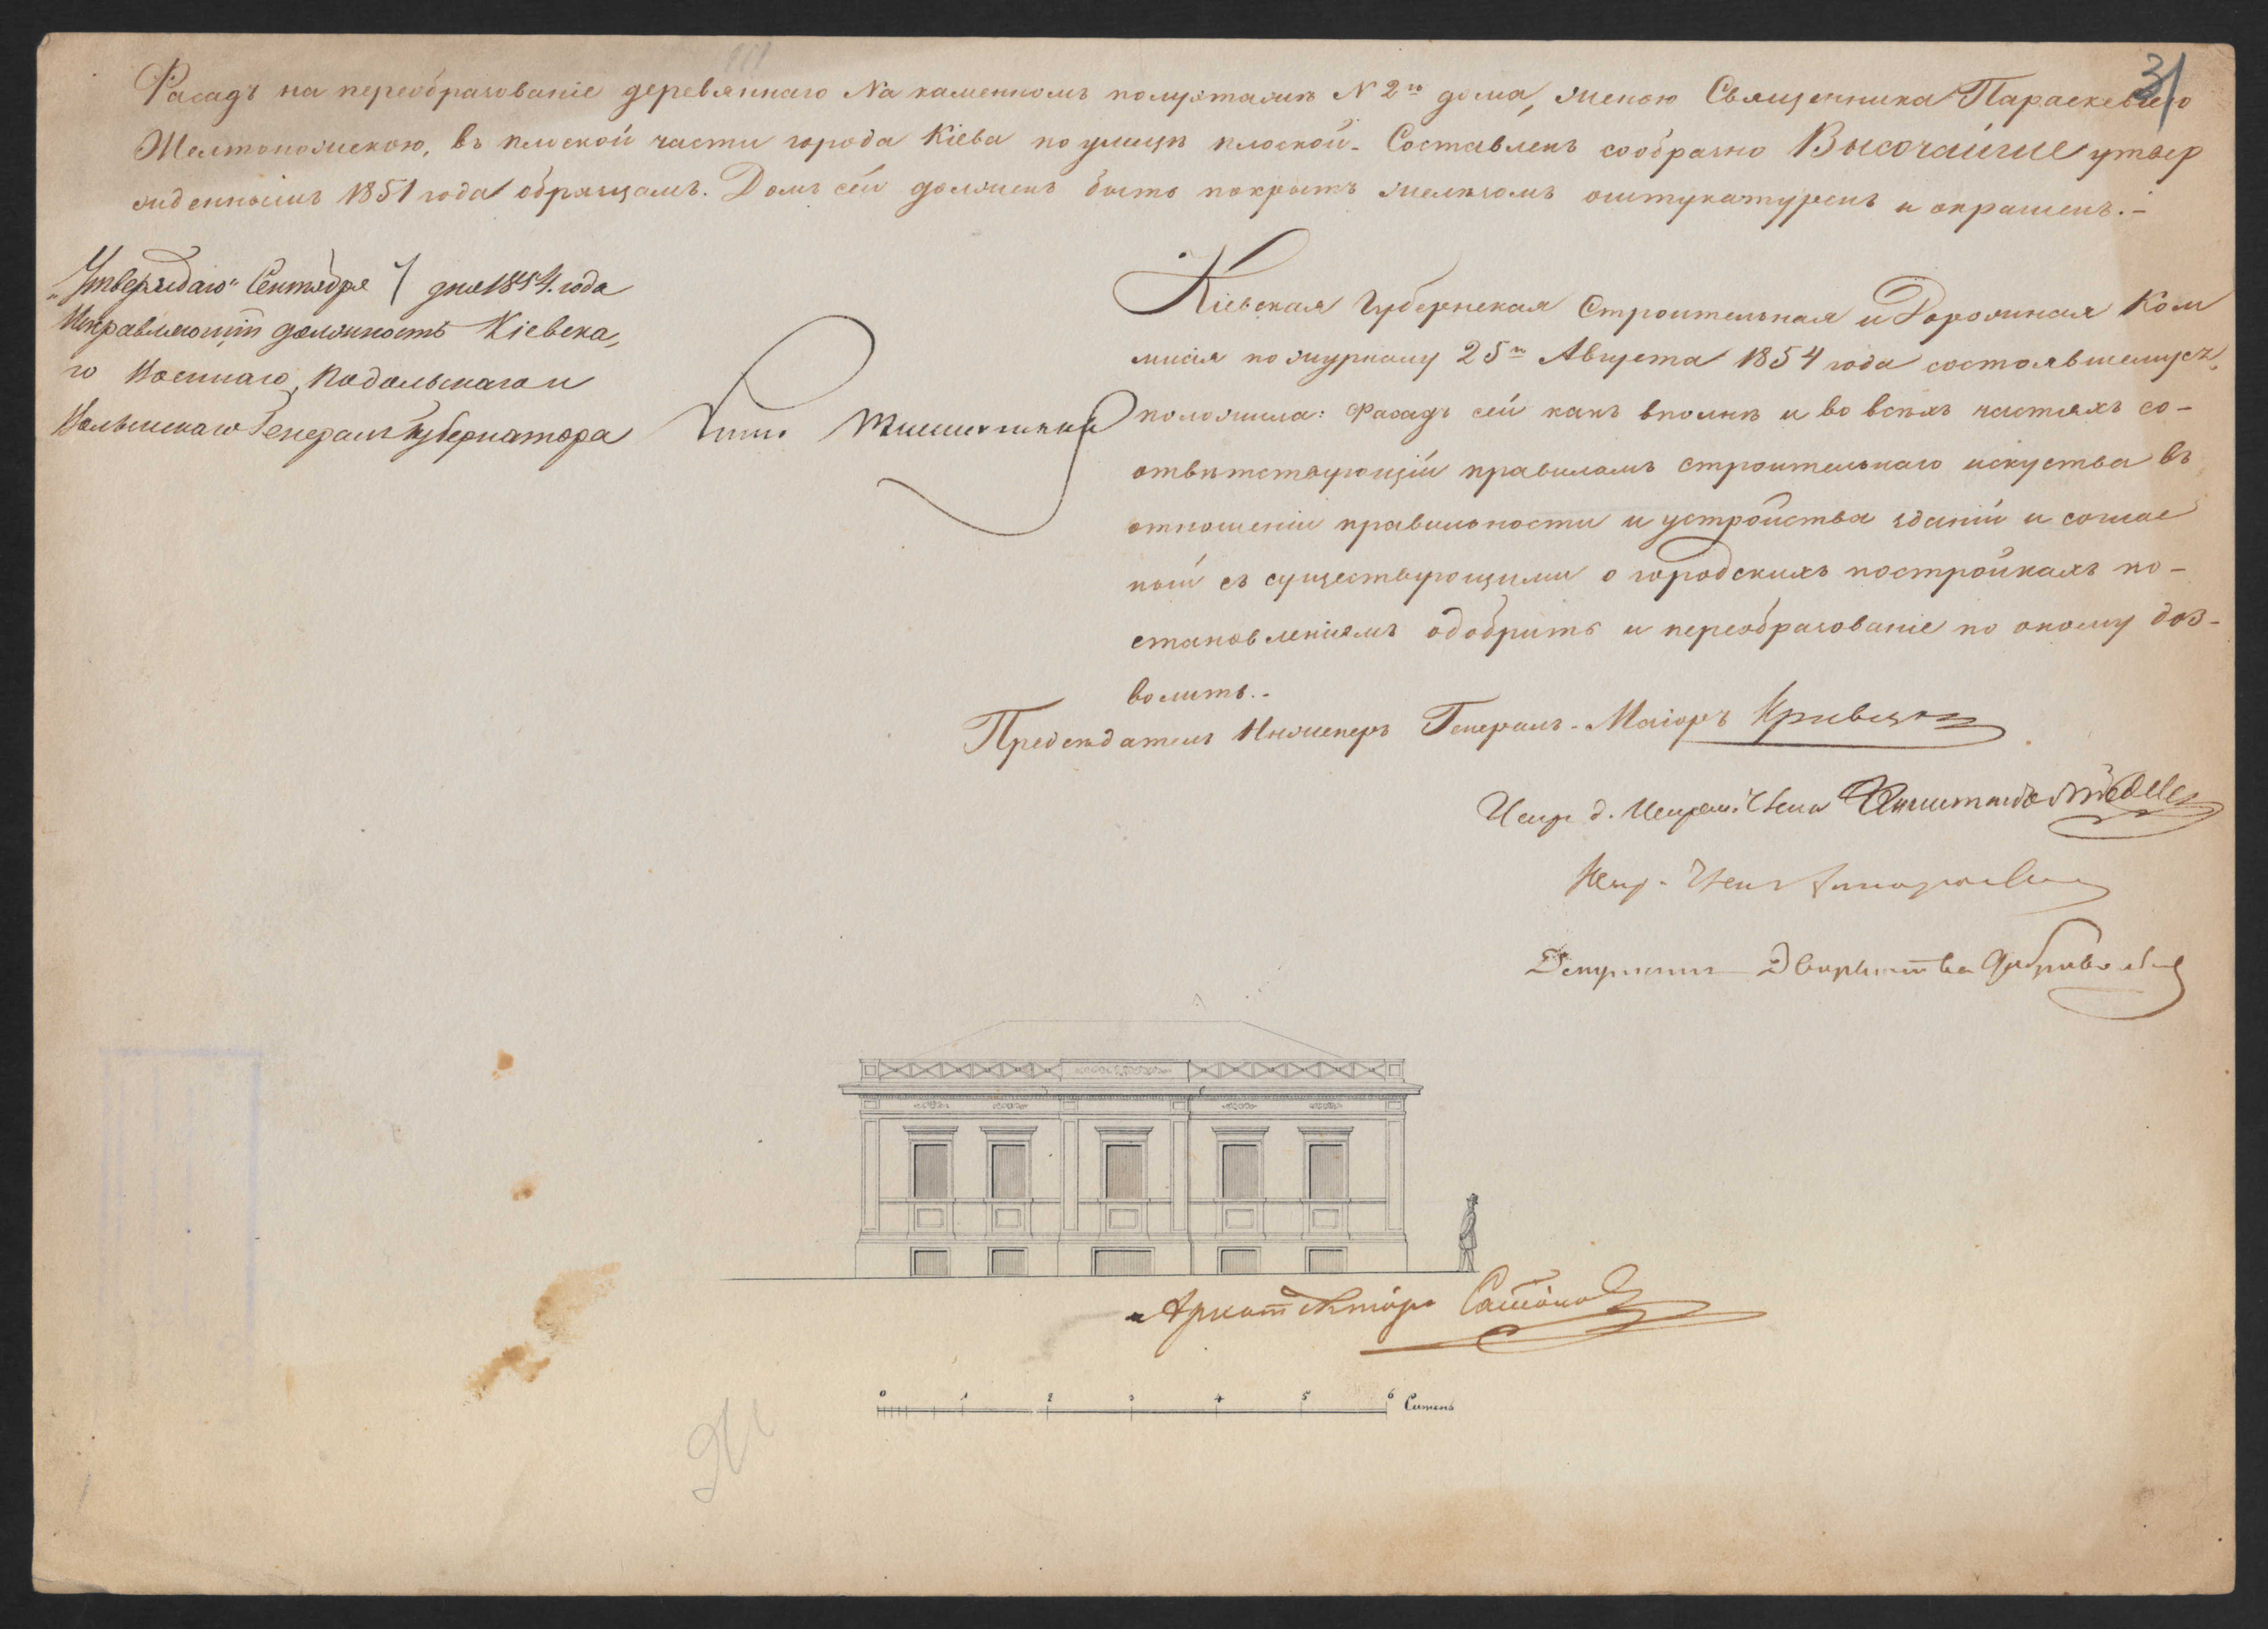 31
Фасадъ на переобразованіе деревяннаго на каменномъ полуэтажѣ № 2го дома, женою Священника Параскевіею
Желтоножскою, въ плоской части города Кіева по улицѣ плоской. Составленъ сообразно Высочайше утвер
жденнымъ 1851 года образцамъ. Домъ сей долженъ быть покрытъ желѣзомъ оштукатуренъ и окрашенъ.-
„Утверждаю" Сентября дня 1854. года
Исправляющій должность Кіевска,
го Военнаго, Подольскаго и
Волынскаго Генералъ Губернатора
Кіевская Губернская Строительная и Дорожная Ком
мисія по журналу 25го Августа 1854 года состоявшемуся,
положила: Фасадъ сей какъ вполнѣ и во всѣхъ частяхъ со-
отвѣтствующій правиламъ строительнаго искуства въ
отношеніи правильности и устройства зданій и соглас
ный съ существующими о городскихъ постройкахъ по-
становленіямъ одобрить и переобразованіе по оному доз-
волить.-
Предсѣдатель Инженеръ Генералъ-Маіоръ
Депутатъ Дворянства
Архитекторъ
0 1 2 3 4 5 6 Сажень